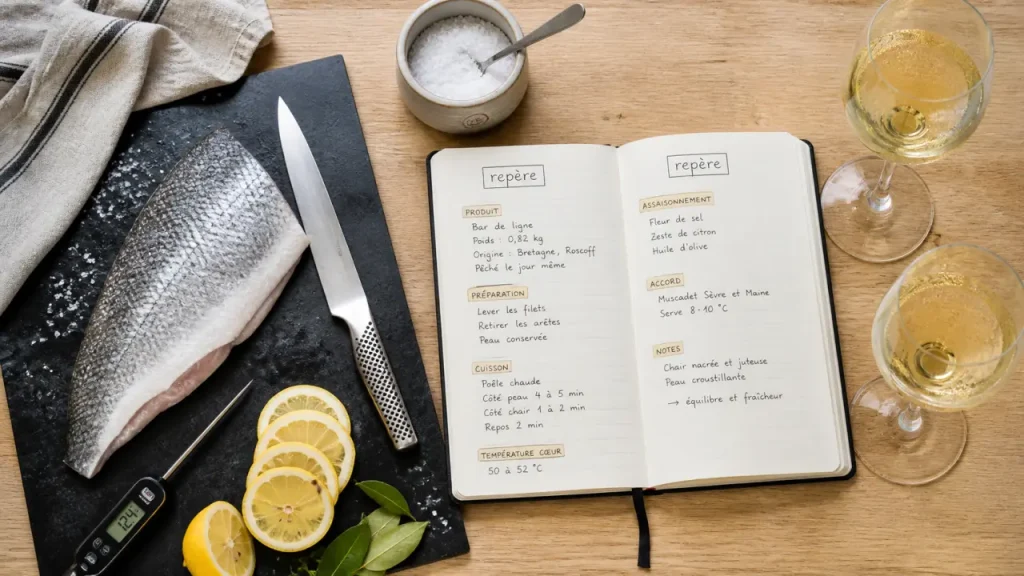 repère
PRODUIT
Bar de ligne
Poids : 0,82 kg
Origine : Bretagne, Roscoff
Pêché le jour même
PRÉPARATION
Lever les filets
Retirer les arêtes
Peau conservée
CUISSON
Poêle chaude
Côté peau 4 à 5 min
Côté chair 1 à 2 min
Repos 2 min
TEMPÉRATURE CŒUR
50 à 52 °C
repère
ASSAISONNEMENT
Fleur de sel
Zeste de citron
Huile d'olive
ACCORD
Muscadet Sèvre et Maine
Serve 8-10 °C
NOTES
Chair nacrée et juteuse
Peau croustillante
→ équilibre et fraîcheur